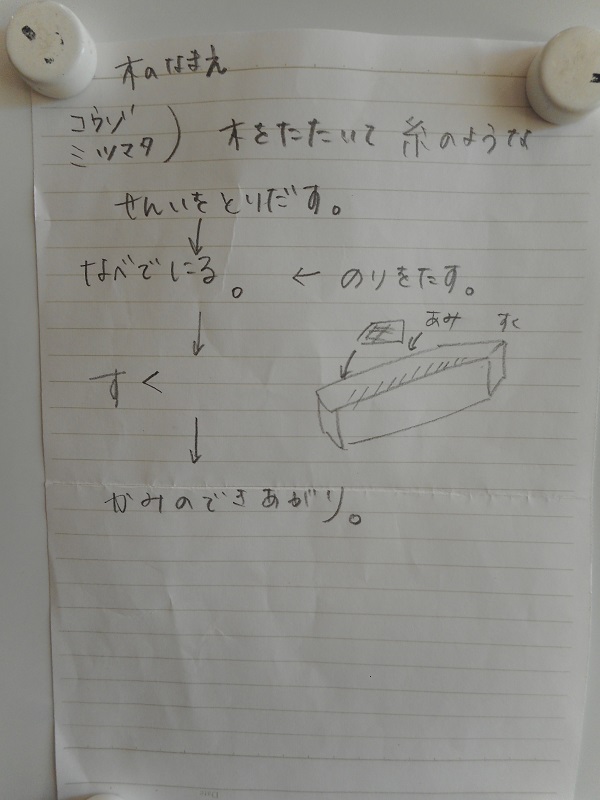 木のなまえ
コウゾ
ミツマタ ) 木をたたいて 糸のような
せんいをとりだす。
↓
なべでにる。 ← のりをたす。
↓
あみ すく
すく
↓
かみのできあがり。